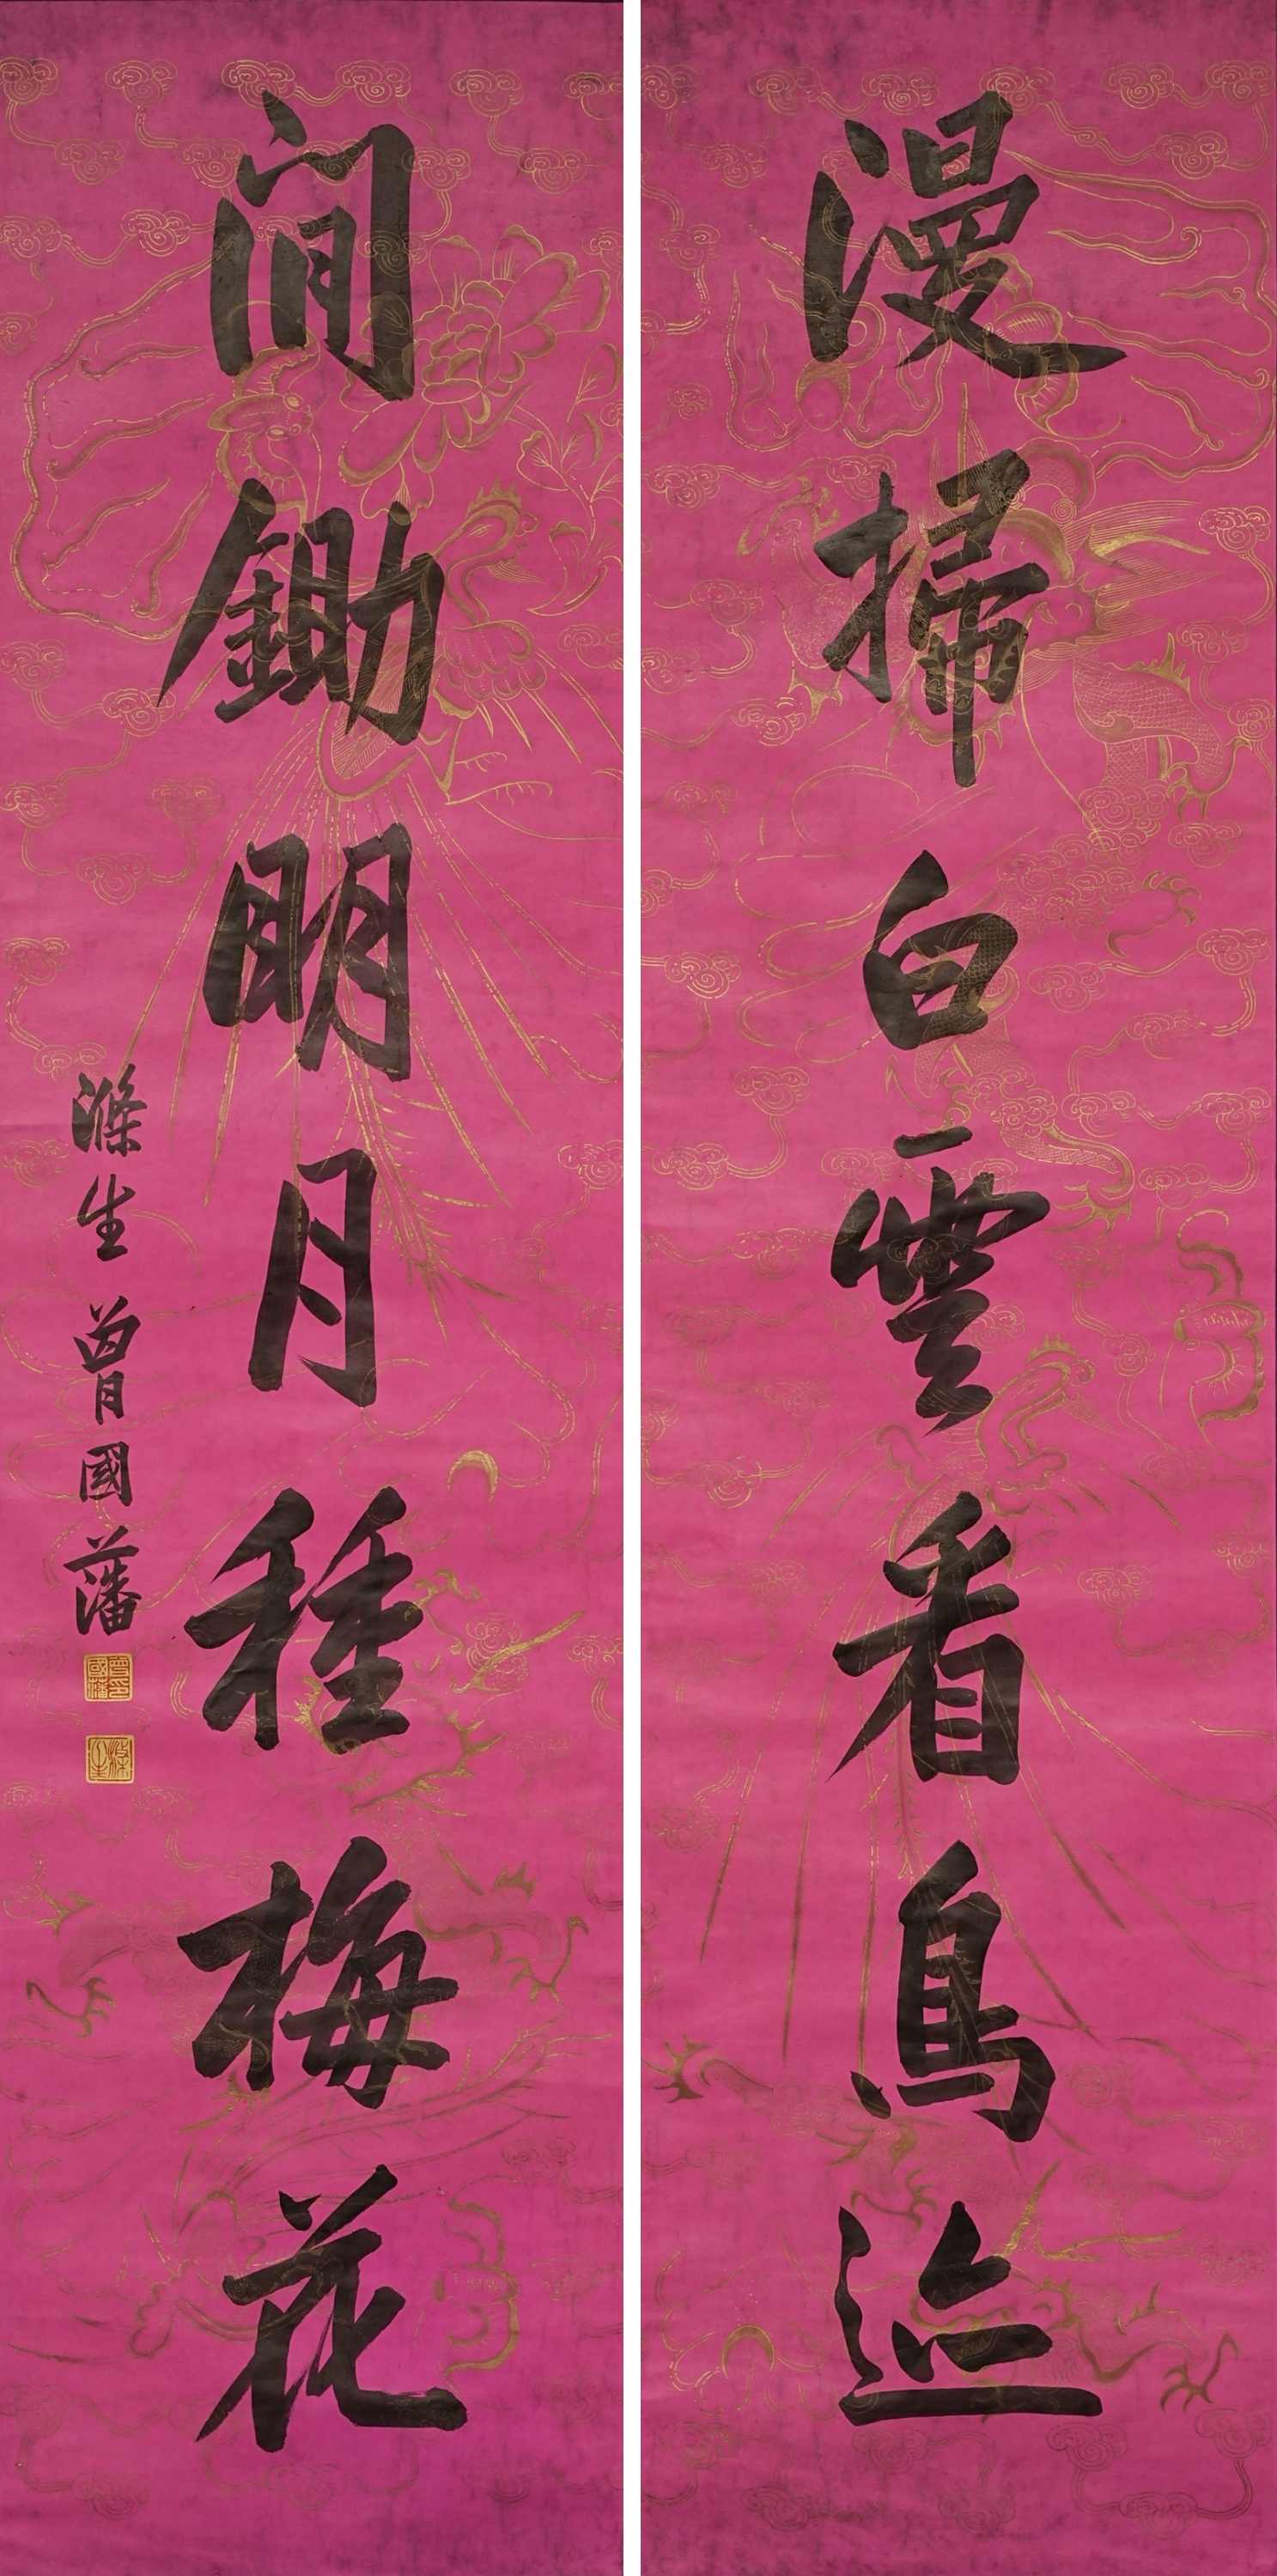 漫掃白雲看鳥迹
閒鋤明月種梅花
滌生曾國藩
曾國藩印
滌生